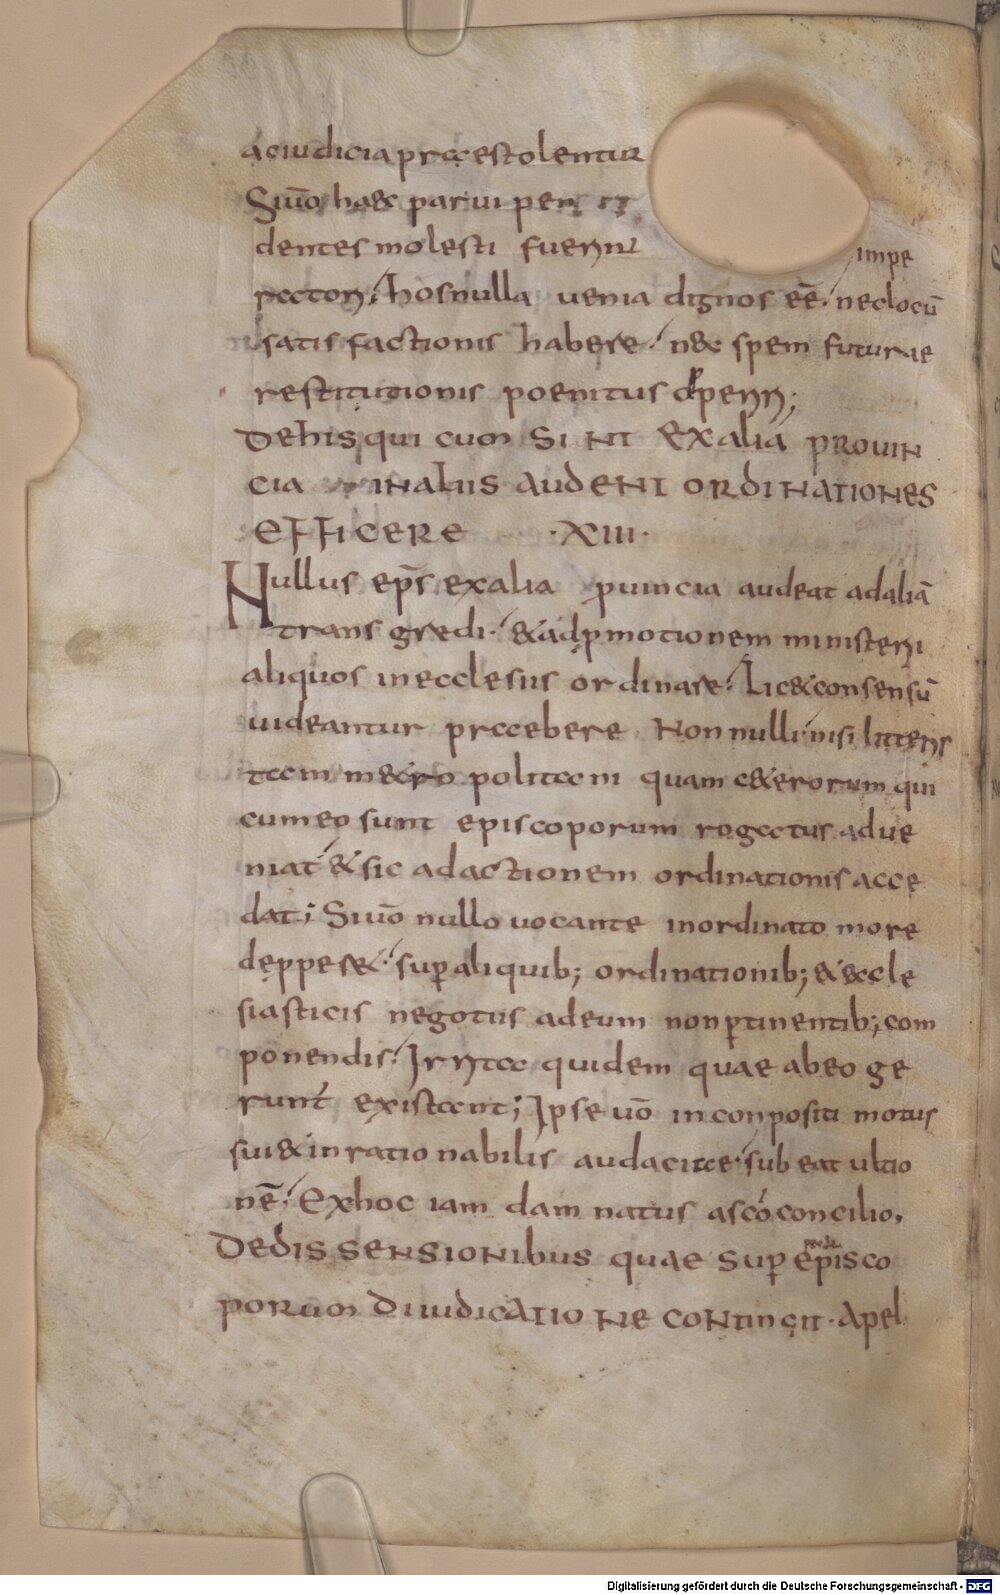 ac iudicia praestolentur
Siuo haec parui pen
dentes molesti fuerint
impe
ratori; hos nulla uenia dignos eē. nec locū
satisfactionis habere. nec spem futurae
restitutionis poenitus operiri;
De his qui cum sint ex alia prouin
cia in aliis audent ordinationes
efficere ·XIII·
Nullus ep̄s ex alia prouincia audeat ad aliā
transgredi. & ad promotionem ministerii
aliquos in ecclesiis ordinare. Lic& consensū
uideantur praebere Nonnulli. nisi litteris
tam m&ropolitani quam c&erorum qui
cum eo sunt episcoporum rogatus adue
niat & sic ad actionem ordinationis acce
dat; Si uō nullo uocante inordinato more
deppes&. sup aliquib; ordinationib; & eccle
siasticis negotiis ad eum non ptinentib; com
ponendis. Irrita quidem quae ab eo ge
runt existant; Ipse uō inconpositi motus
sui & inrationabilis audaciae. subeat ultio
nē. Ex hoc iam damnatus a scō concilio,
De dissensionibus quae sup episco
porum diiudicatione contingit. Apel
Digitalisierung gefördert durch die Deutsche Forschungsgemeinschaft - DFG